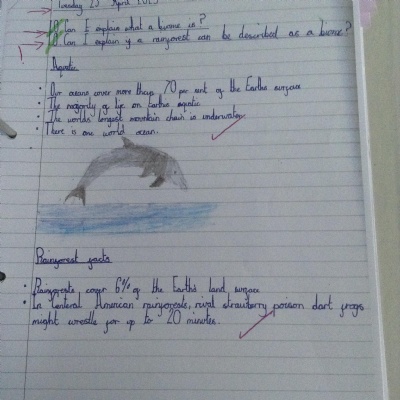 Tuesday 23 April
Can I explain what a biome is?
Can I explain if a rainforest can be described as a biome?
Aquatic
• Our oceans cover more than 70 per cent of the Earths surface
• The majority of life on Earth is aquatic
• The worlds longest mountain chain is underwater
• There is one world ocean.
Rainforest facts
• Rainforests cover 6% of the Earth's land surface
• In Central American rainforests, rival strawberry poison dart frogs
might wrestle for up to 20 minutes.